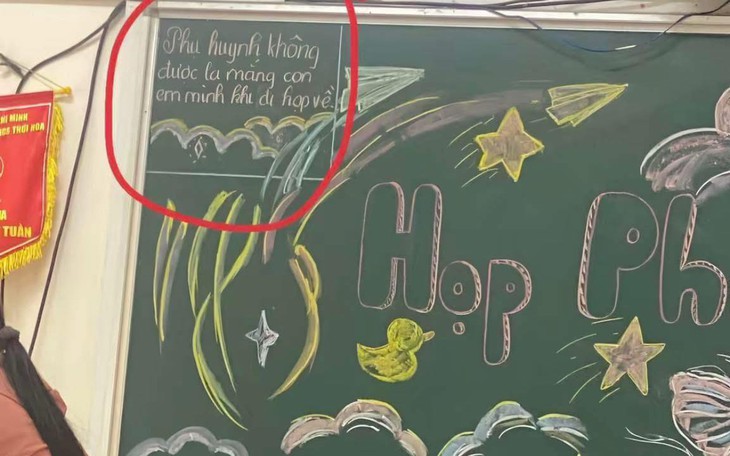 Phụ huynh không
được la mắng con
em mình khi đi họp về.
Họp Ph
MINH
THỚI HÒA
TUẦN